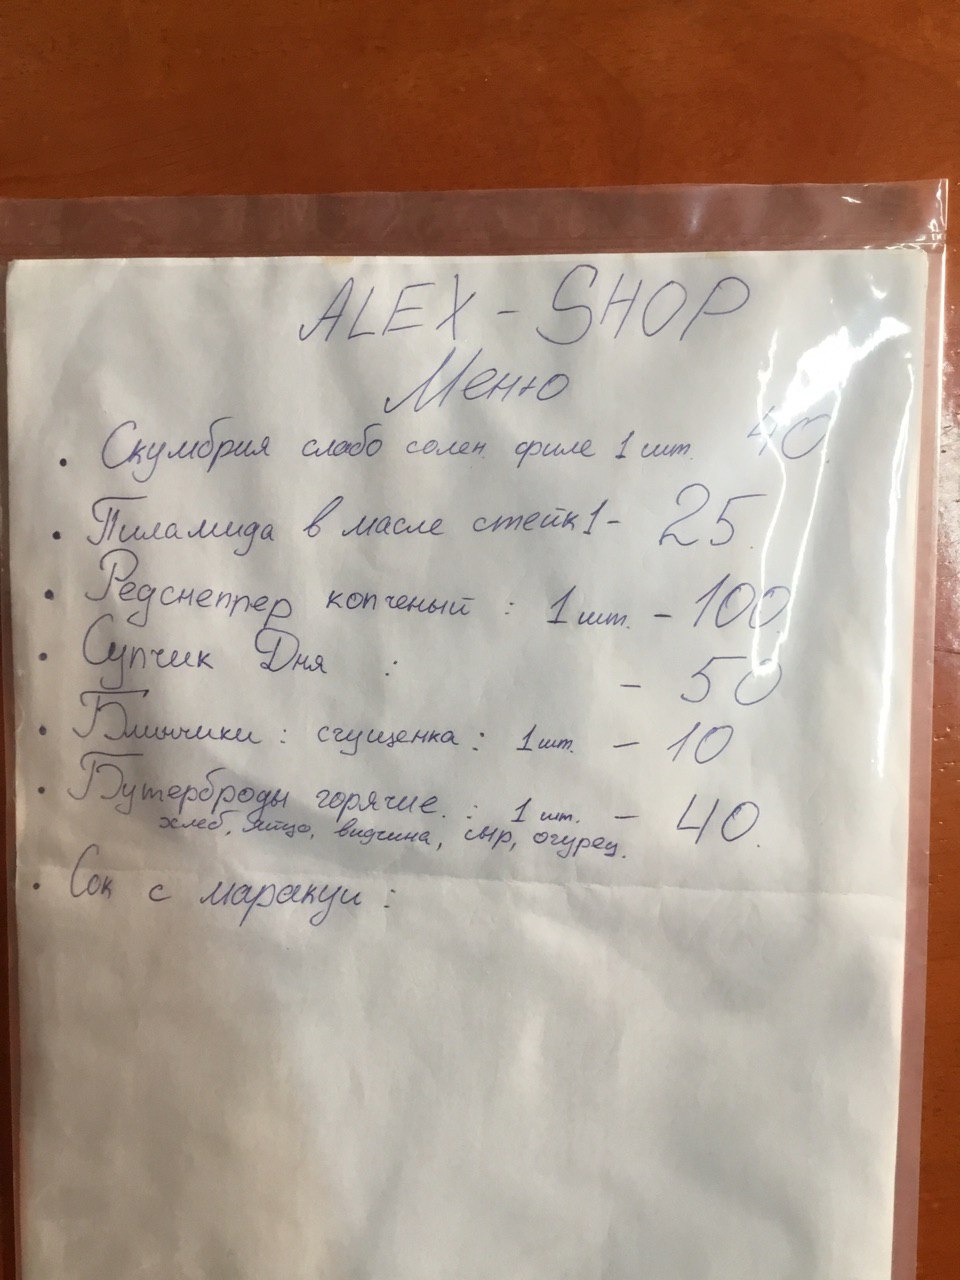 ALEX - SHOP
Меню
• Скумбрия слабо солен. филе 1 шт. 40.
• Пиламида в масле стейк 1 - 25.
• Редснеппер копченый : 1 шт. - 100.
• Супчик Дня : - 50
• Блинчики : сгущенка : 1 шт. - 10
• Бутерброды горячие. : 1 шт. - 40.
хлеб, яйцо, видчина, сыр, огурец.
• Сок с маракуи :